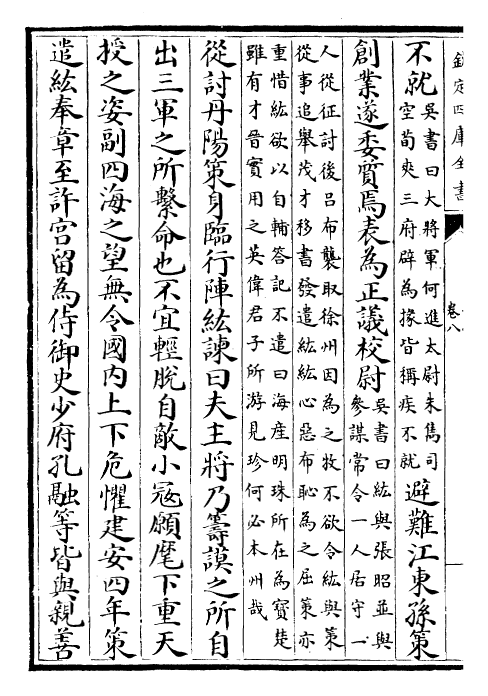 欽定四庫全書
卷八
不就吳書曰大將軍何進太尉朱雋司
空荀爽三府辟為掾皆稱疾不就避難江東孫策
創業遂委質焉表為正議校尉吳書曰紘與張昭並與
參謀常令一人居守一
人從征討後呂布襲取徐州因為之牧不欲令紘與策
從事追舉茂才移書發遣紘紘心惡布恥為之屈策亦
重惜紘欲以自輔答記不遣曰海産明珠所在為寶楚
雖有才晉實用之英偉君子所游見珍何必本州哉
從討丹陽策身臨行陣紘諫曰夫主將乃籌謨之所自
出三軍之所繫命也不宜輕脫自敵小寇願麾下重天
授之姿副四海之望無令國内上下危懼建安四年策
遣紘奉章至許宫留為侍御史少府孔融等皆與親善